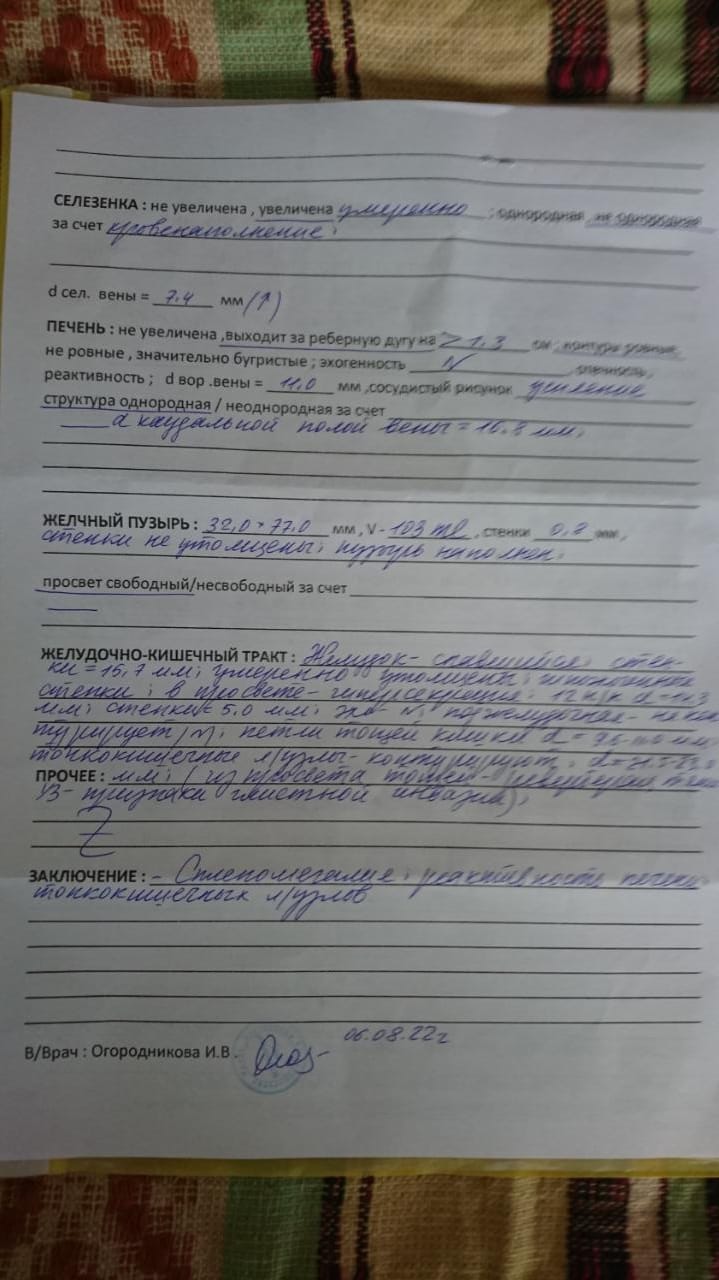 СЕЛЕЗЕНКА : не увеличена , увеличена умеренно ; однородная , не однородная
за счет кровенаполнение ;
d сел. вены = 7.4 мм (↑)
ПЕЧЕНЬ : не увеличена ,выходит за реберную дугу на ≥ 1.3 см ; контуры ровные,
не ровные , значительно бугристые ; эхогенность N
реактивность ; d вор .вены = 11.0 мм ,сосудистый рисунок усиление
структура однородная / неоднородная за счет
d каудальной полой вены = 16.8 мм.
ЖЕЛЧНЫЙ ПУЗЫРЬ : 32,0 × 77,0 мм , V - 103 ml , стенки мм ,
стенки не утолщены, пузырь наполнен.
просвет свободный/несвободный за счет
ЖЕЛУДОЧНО-КИШЕЧНЫЙ ТРАКТ : Желудок - спавшийся; стен-
ки = 15,7 мм; умеренно утолщены;
стенки ; в просвете - гиперсекреция; 12 п/к d =
мм; стенки = 5.0 мм; поджелудочная - не кон
турирует /N; петли тощей кишки d = мм;
тонкокишечные л/узлы - контурируют, d =
ПРОЧЕЕ : мм; (из просвета тощей -
УЗ - признаки глистной инвазии);
ЗАКЛЮЧЕНИЕ : - Спленомегалия; реактивность печени,
тонкокишечных л/узлов
06.08.22г
В/Врач : Огородникова И.В .